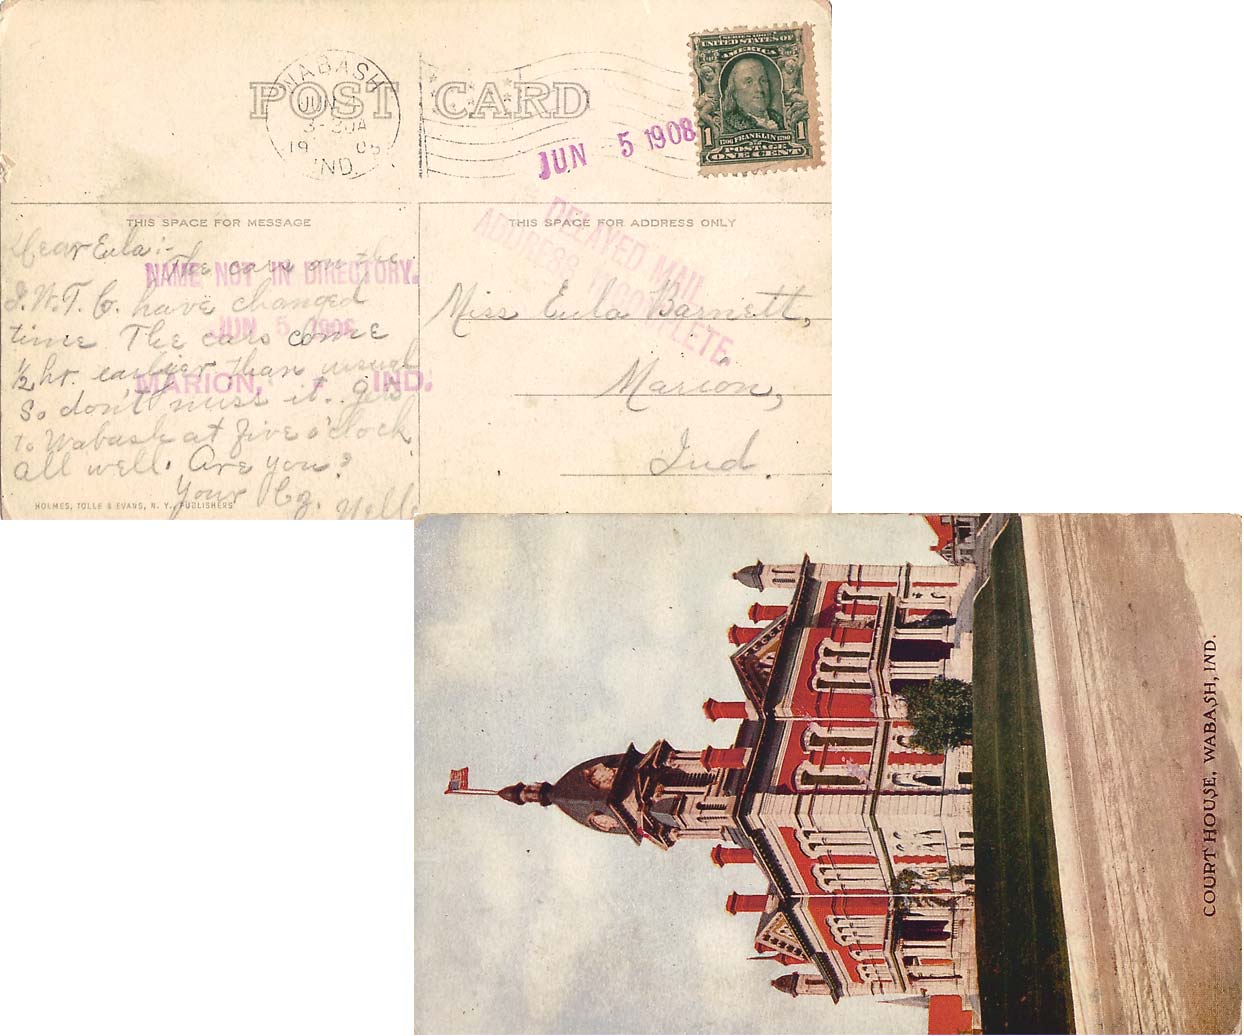 POST CARD
WABASH
JUN
3-30A
19 0
IND.
JUN 5 1908
SERIES 1902
UNITED STATES OF
AMERICA
1 1
1706 FRANKLIN 1790
POSTAGE
ONE CENT
THIS SPACE FOR MESSAGE
Dear Eula:-
The cars on the
I.W.T. Co. have changed
time The cars come
1/2 hr. earlier than usual
So don't miss it. Gets
to Wabash at five o'clock
all well. Are you?
Your Cz. Nelle
NAME NOT IN DIRECTORY.
JUN 5 1908
MARION, IND.
HOLMES, TOLLE & EVANS, N. Y., PUBLISHERS
THIS SPACE FOR ADDRESS ONLY
DELAYED MAIL
ADDRESS INCOMPLETE.
Miss Eula Barnett,
Marion,
Ind.
COURT HOUSE, WABASH, IND.